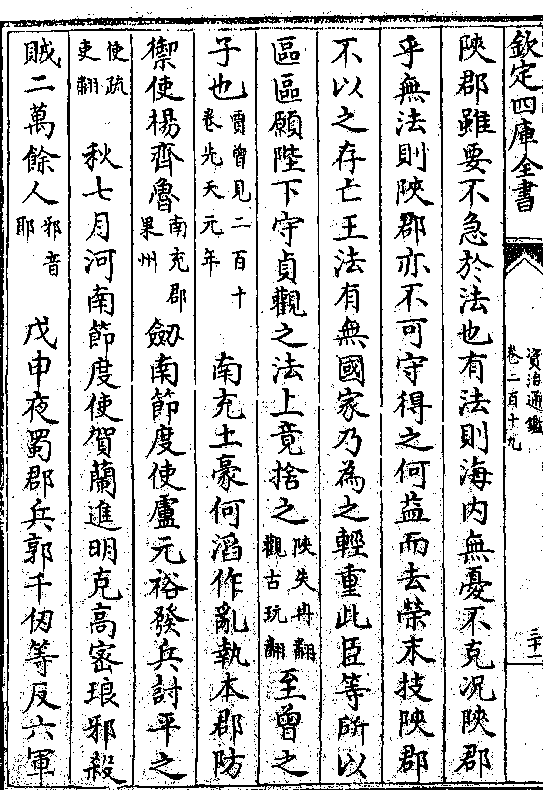 欽定四庫全書
資治通鑑
卷二百十九
三十一
陝郡雖要不急於法也有法則海内無憂不克況陝郡
乎無法則陝郡亦不可守得之何益而去榮末技陝郡
不以之存亡王法有無國家乃為之輕重此臣等所以
區區願陛下守貞觀之法上竟捨之陝失冉翻觀古玩翻至曾之
子也賈曾見二百十卷先天元年 南充土豪何滔作亂執本郡防
禦使楊齊魯南充郡果州 劒南節度使盧元裕發兵討平之
使疏吏翻 秋七月河南節度使賀蘭進明克高密琅邪殺
賊二萬餘人邪音耶 戊申夜蜀郡兵郭千仞等反六軍